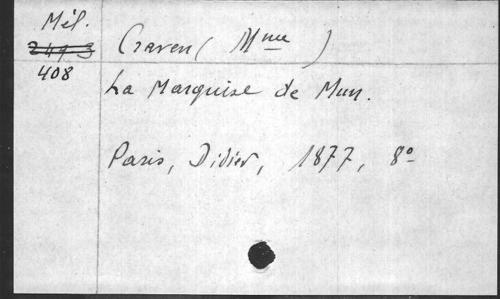 Mél.
408
Craven (Mme)
La Marquise de Mun.
Paris, Didier, 1877, 8°